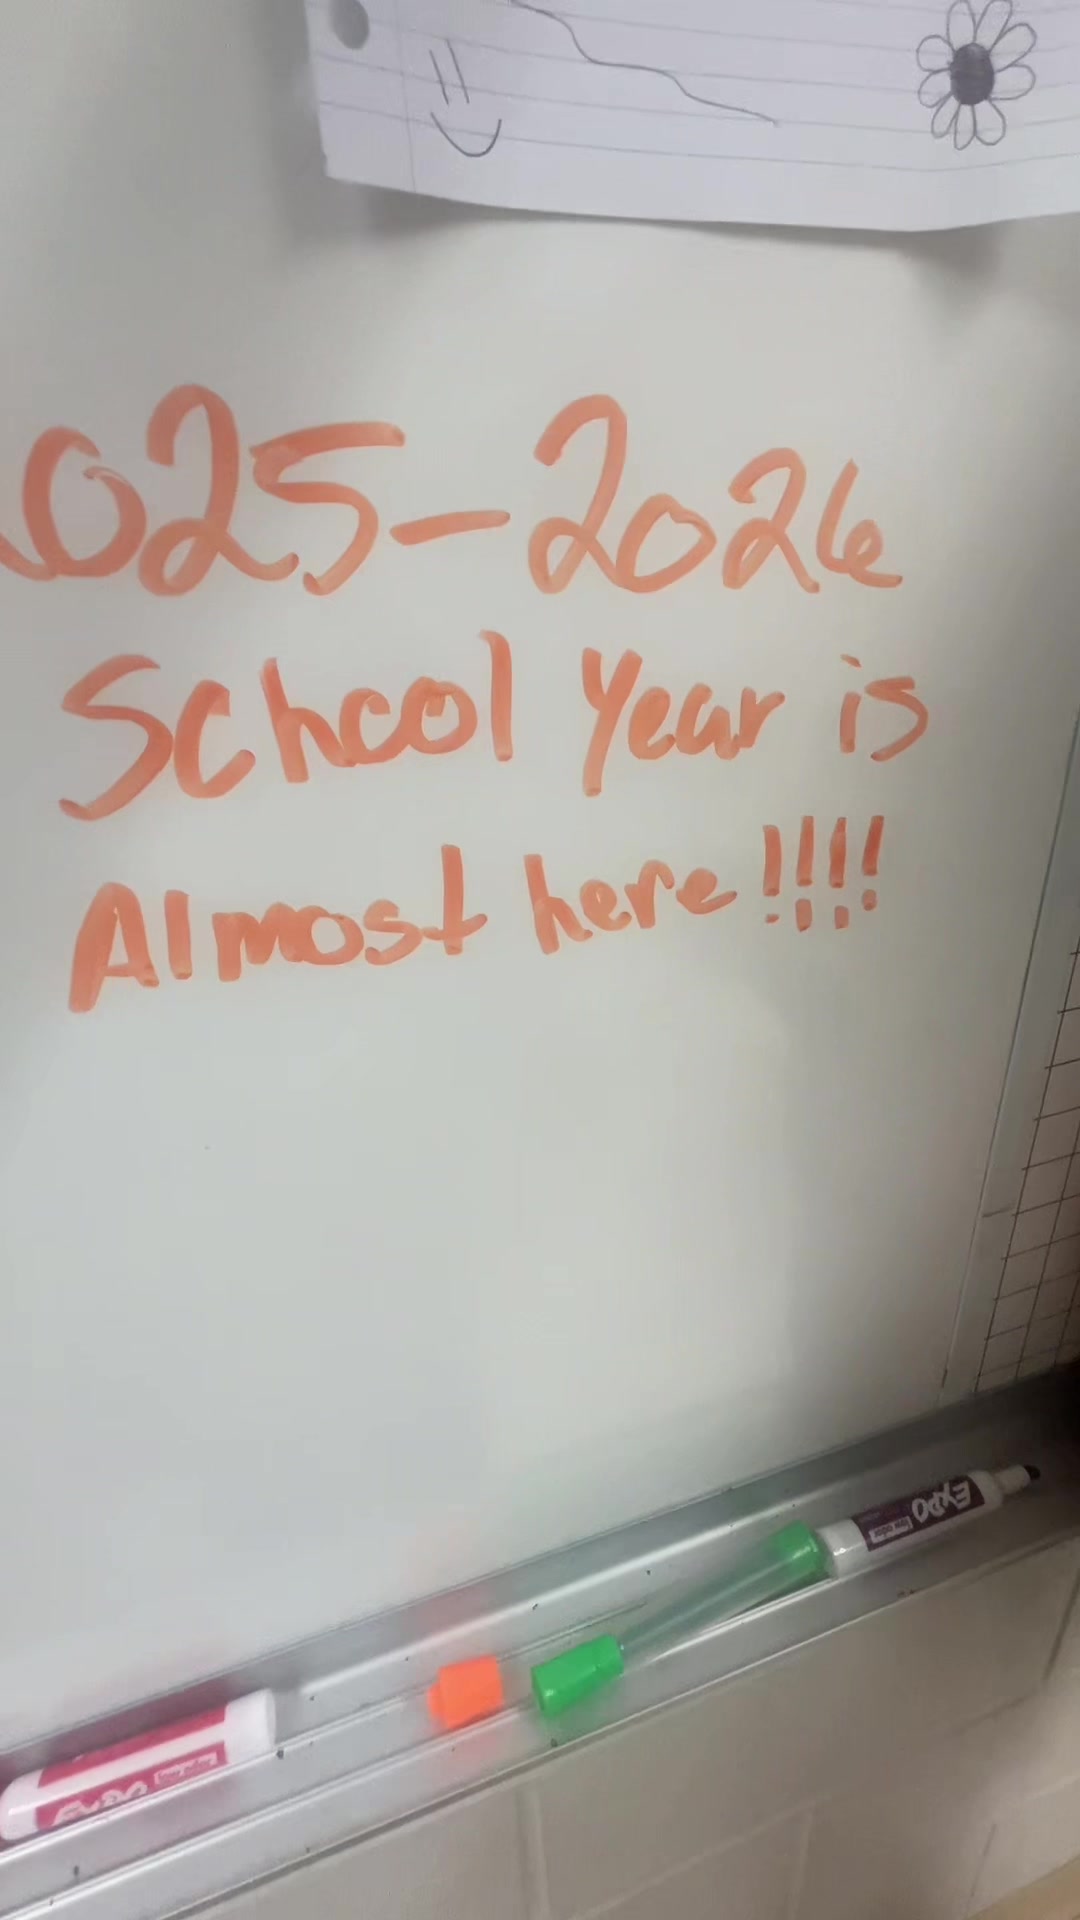 2025-2026
School Year is
Almost here!!!!
EXPO
low odor
EXPO